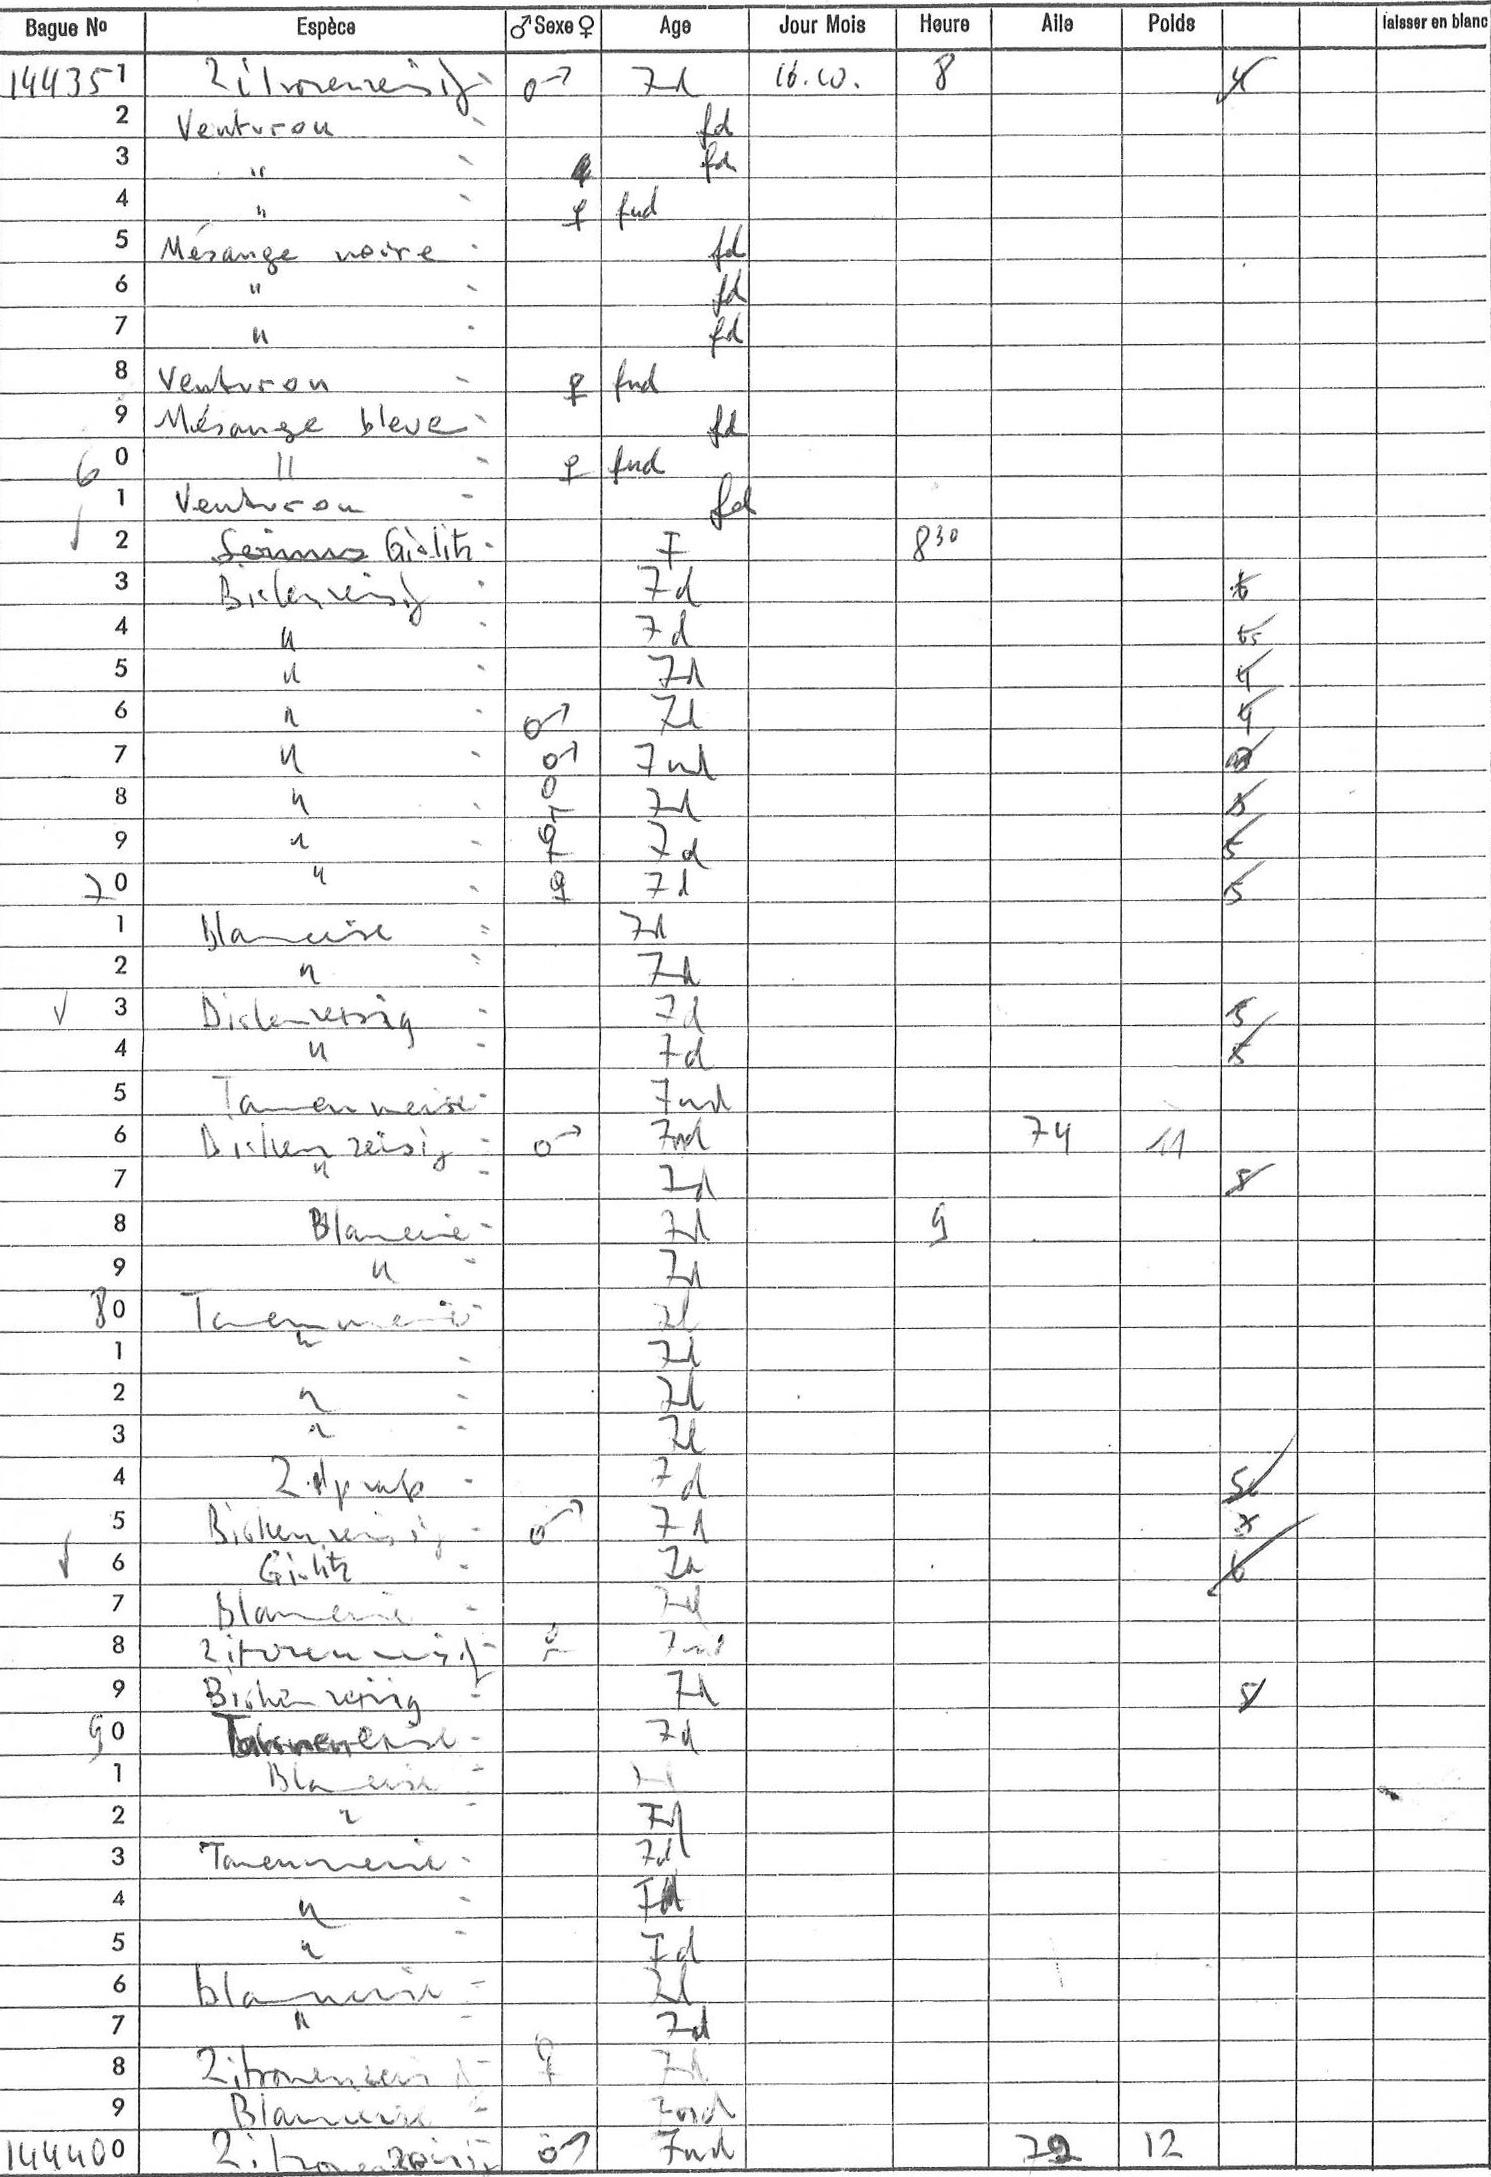 Bague No Espèce ♂ Sexe ♀ Age Jour Mois Heure Aile Poids laisser en blanc
144351 Zitronenzeisig - ♂ 7d 16.10. 8 4
2 Venturon - fd
3 " - ♀ fd
4 " - ♀ fnd
5 Mésange noire - fd
6 " - fd
7 " - fd
8 Venturon - ♀ fnd
9 Mésange bleue - fd
60 " - ♀ fnd
1 Venturon - fd
2 Girlitz - 7 8 30
3 Birkenzeisig - 7d 6
4 " - 7d
5 " - 7d 4
6 " - ♂ 7d 4
7 " - ♂ 7nd
8 " - ♀ 7d 5
9 " - ♀ 7d 5
70 " - ♀ 7d 5
1 Blaumeise - 7d
2 " - 7d
3 Birkenzeisig - 7d 5
4 " - 7d 5
5 Tannenmeise - 7nd
6 Birkenzeisig - ♂ 7nd 74 11
7 " - 7d 5
8 Blaumeise - 7d 9
9 " - 7d
80 Tannenmeise - 7d
1 " - 7d
2 " - 7d
3 " - 7d
4 Zilpzalp - 7d 5
5 Birkenzeisig - ♂ 7d
6 Girlitz - 7d 6
7 Blaumeise - 7d
8 Zitronenzeisig - ♀ 7nd
9 Birkenzeisig - 7d 5
90 Tannenmeise - 7d
1 Blaumeise -
2 " - 7d
3 Tannenmeise - 7d
4 " - 7d
5 " - 7d
6 Blaumeise - 7d
7 " - 7d
8 Zitronenzeisig - ♀ 7d
9 Blaumeise - 7nd
144400 Zitronenzeisig ♂ 7nd 12